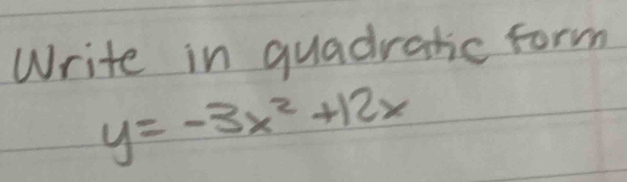 Write in quadratic form
y = -3x² + 12x